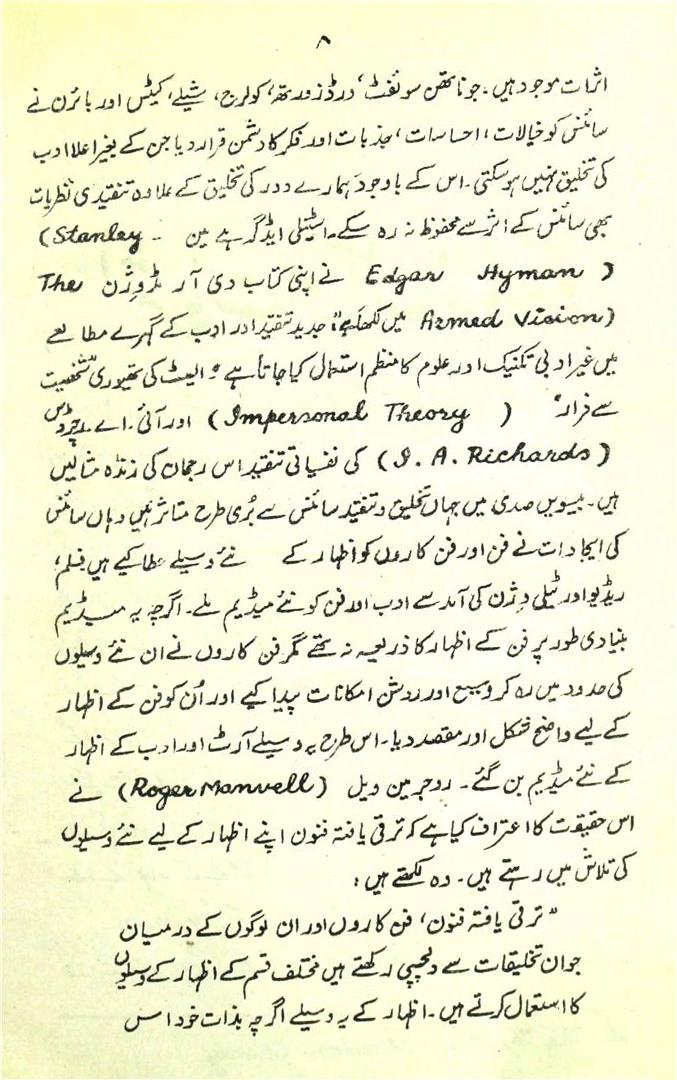 ۸
اثرات موجود ہیں۔ جوناتھن سوئفٹ، ورڈزورتھ، کولرج، شیلے، کیٹس اور بائرن نے
سائنس کو خیالات، احساسات، جذبات اور فکر کا دشمن قرار دیا جن کے بغیر اعلا ادب
کی تخلیق نہیں ہوسکتی۔ اس کے باوجود ہمارے دور کی تخلیق کے علاوہ تنقیدی نظریات
بھی سائنس کے اثر سے محفوظ نہ رہ سکے۔ اسٹینلی ایڈگر ہے مین ۔ (Stanley
Edgar Hyman) نے اپنی کتاب دی آرمڈ وژن The
(Armed Vision) میں لکھا ہے "جدید تنقید اور ادب کے گہرے مطالعے
میں غیر ادبی تکنیک اور علوم کا منظم استعمال کیا جاتا ہے" ایلیٹ کی تھیوری "شخصیت
سے فرار" (Impersonal Theory) اور آئی۔ اے۔ رچرڈس
(I. A. Richards) کی نفسیاتی تنقید اس رجحان کی زندہ مثالیں
ہیں۔ بیسویں صدی میں جہاں تخلیق و تنقید سائنس سے بُری طرح متاثر ہیں وہاں سائنس
کی ایجادات نے فن اور فن کاروں کو اظہار کے نئے وسیلے عطا کیے ہیں فلم،
ریڈیو اور ٹیلی وژن کی آمد سے ادب اور فن کو نئے میڈیم ملے۔ اگرچہ یہ میڈیم
بنیادی طور پر فن کے اظہار کا ذریعہ نہ تھے مگر فن کاروں نے ان نئے وسیلوں
کی حدود میں رہ کر وسیع اور روشن امکانات پیدا کیے اور اُن کو فن کے اظہار
کے لیے واضح شکل اور مقصد دیا۔ اس طرح یہ وسیلے آرٹ اور ادب کے اظہار
کے نئے میڈیم بن گئے۔ روجر مین ویل (Roger Manvell) نے
اس حقیقت کا اعتراف کیا ہے کہ ترقی یافتہ فنون اپنے اظہار کے لیے نئے وسیلوں
کی تلاش میں رہتے ہیں۔ وہ لکھتے ہیں:
"ترقی یافتہ فنون، فن کاروں اور ان لوگوں کے درمیان
جو ان تخلیقات سے دلچسپی رکھتے ہیں مختلف قسم کے اظہار کے وسیلوں
کا استعمال کرتے ہیں۔ اظہار کے یہ وسیلے اگرچہ بذات خود اس